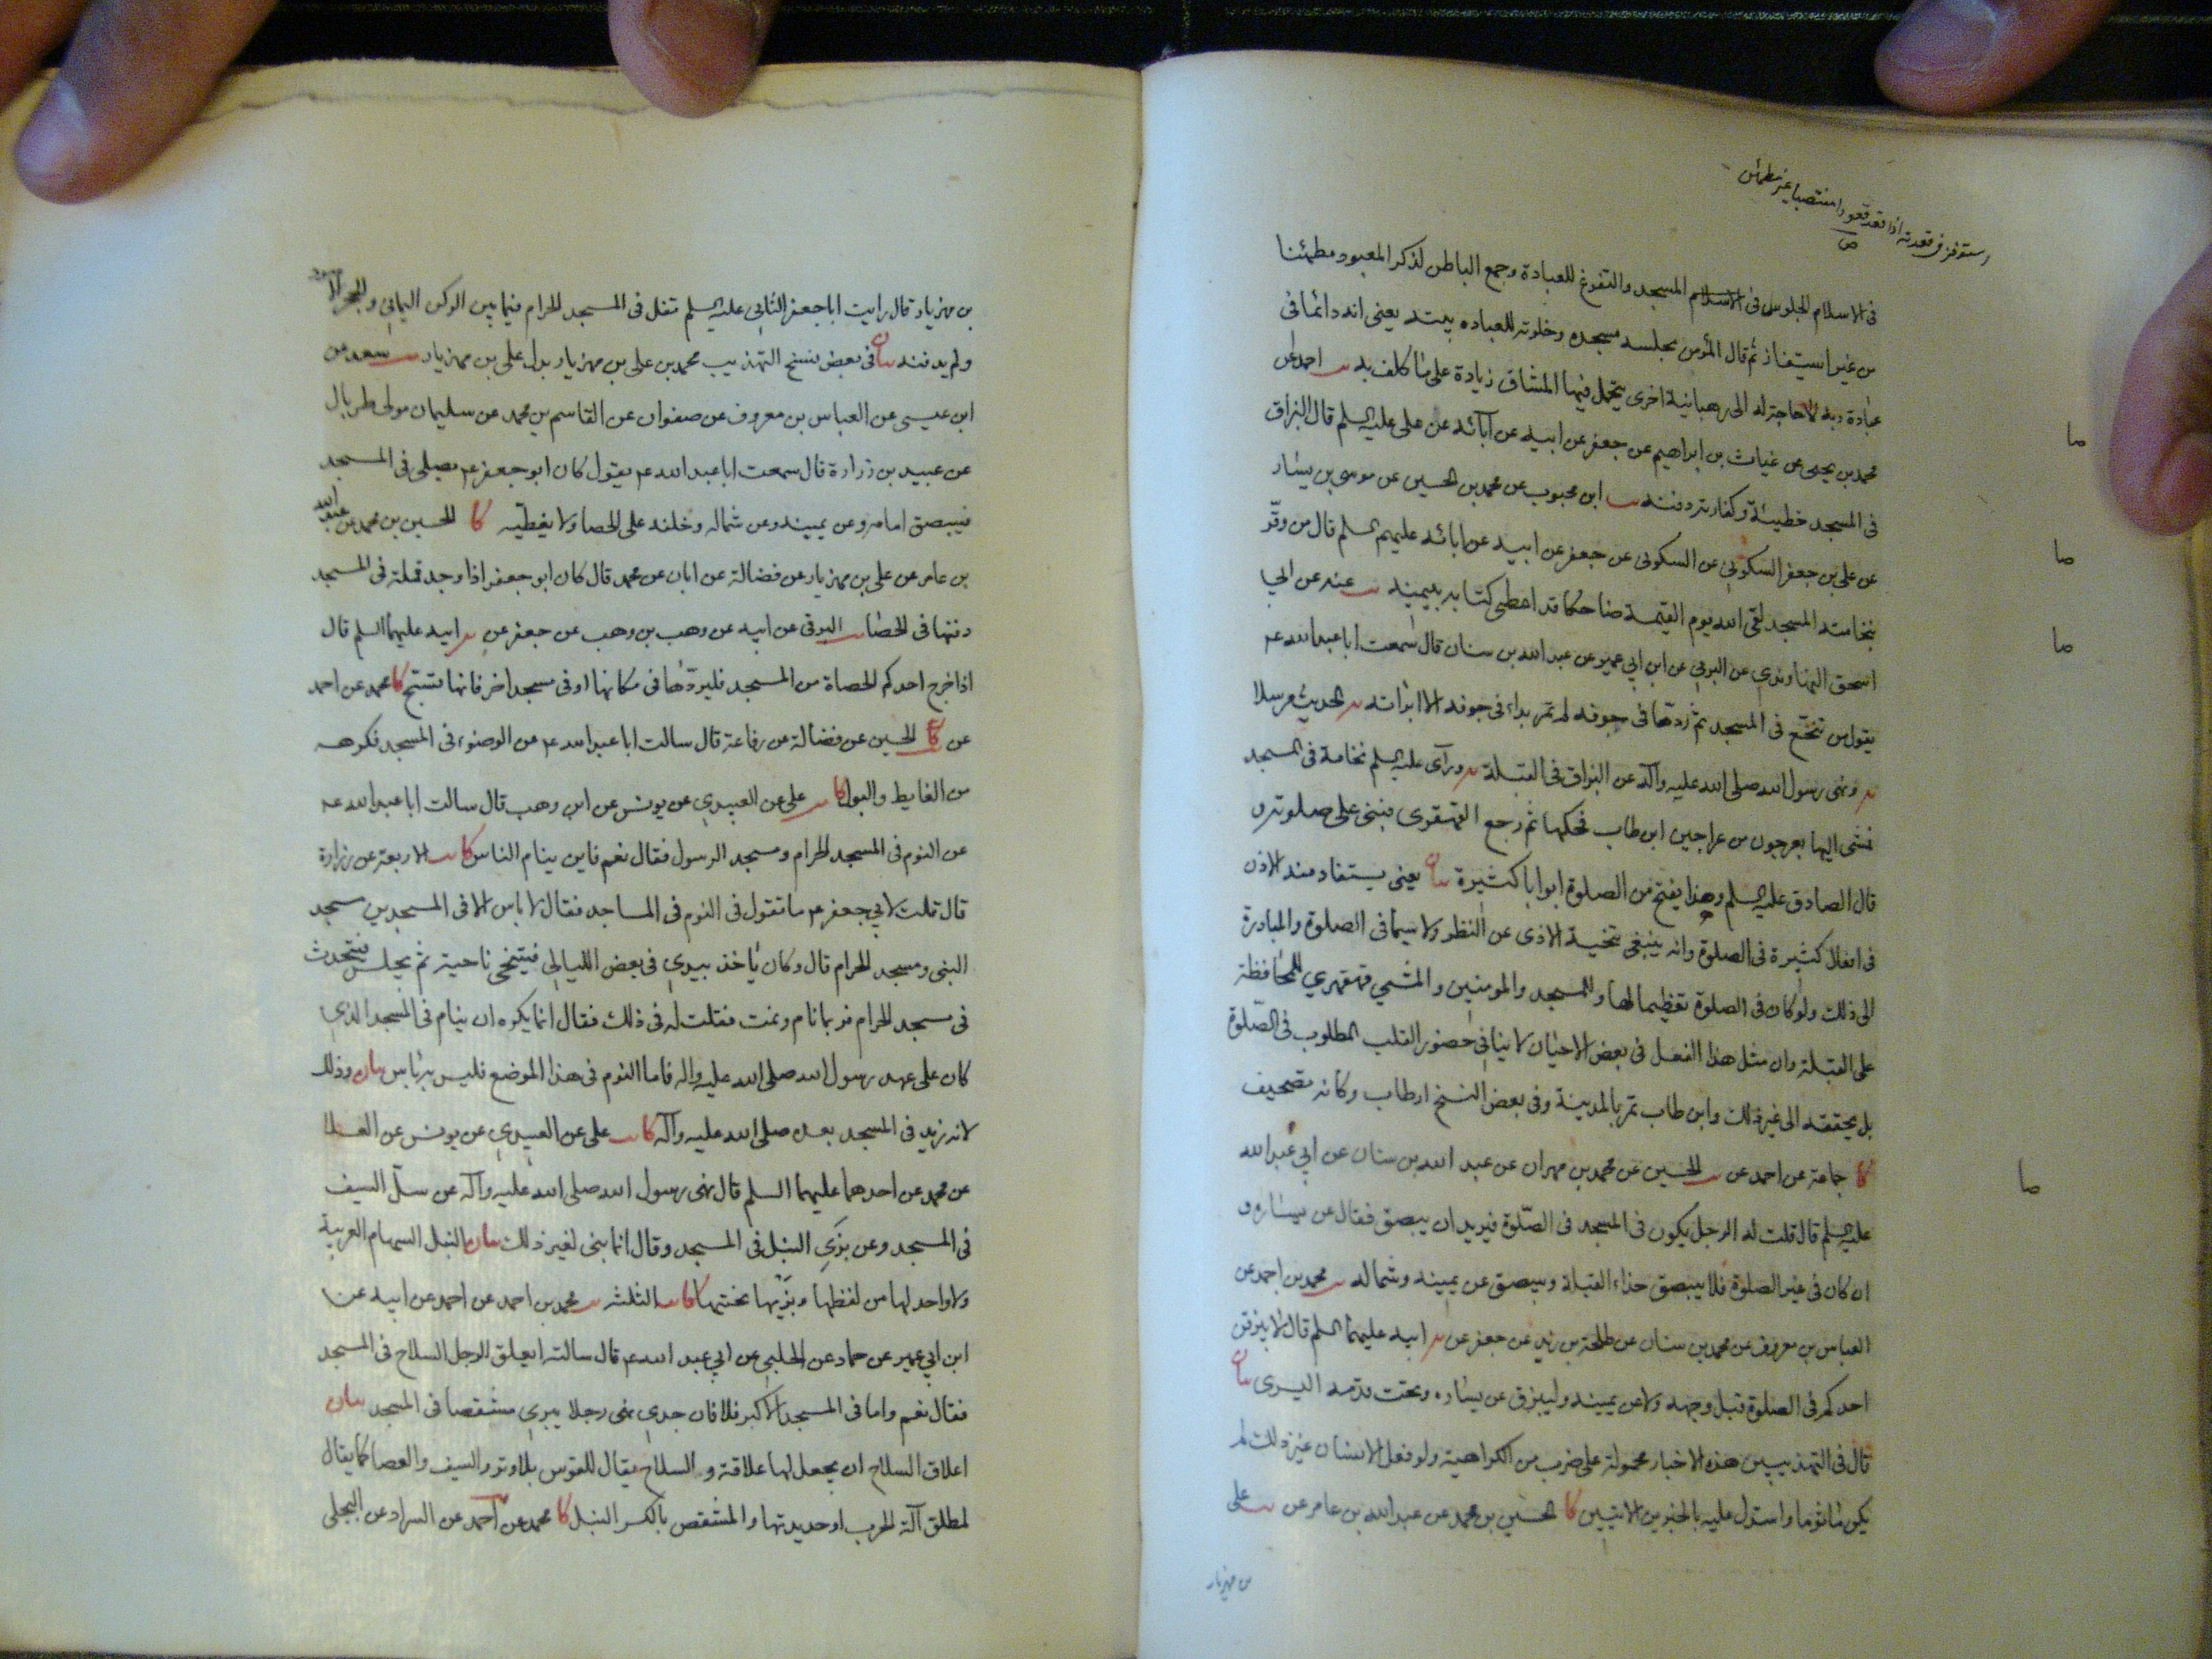 استوفز فی قعدته اذا قعد قعودا منتصبا غیر مطمئن
ص
فی الاسلام الجلوس فی الاسلام المسجد والتفرغ للعبادة وجمع الباطن لذکر المعبود مطمئنا
من غیر استیفاز ثم قال المؤمن مجلسه مسجده وخلوته للعباده بیته یعنی انه دائما فی
عبادة ربه لا حاجة له الی رهبانیة اخری یتحمل فیها المشاق زیادة علی ما کلف به احمد عن
محمد بن یحیی عن غیاث بن ابراهیم عن جعفر عن ابیه عن آبائه عن علی علیه السلم قال البزاق
فی المسجد خطیئة وکفارته دفنه ابن محبوب عن محمد بن الحسین عن موسی بن یسار
عن علی بن جعفر السکونی عن السکونی عن جعفر عن ابیه عن ابائه علیهم السلم قال من وقّر
بنخامته المسجد لقی الله یوم القیمة ضاحکا قد اعطی کتابه بیمینه عنه عن ابی
اسحق النهاوندی عن البرقی عن ابن ابی عمیر عن عبد الله بن سنان قال سمعت ابا عبد الله عم
یقول من تنخّع فی المسجد ثم ردّها فی جوفه لم تمر بداء فی جوفه الا ابراته یه الحدیث مرسلا
یه ونهی رسول الله صلی الله علیه وآله عن البزاق فی القبلة یه ورآی علیه السلم نخامة فی المسجد
فمشی الیها بعرجون من عراجین ابن طاب فحکها ثم رجع القهقری فبنی علی صلوته و
قال الصادق علیه السلم وهذا یفتح من الصلوة ابوابا کثیرة بیان یعنی یستفاد منه الاذن
فی افعال کثیرة فی الصلوة وانه ینبغی تنحیة الاذی عن النظر ولا سیما فی الصلوة والمبادرة
الی ذلک ولو کان فی الصلوة تعظیما لها وللمسجد والمومنین والمشی قهقهری للمحافظة
علی القبلة وان مثل هذا الفعل فی بعض الاحیان لا ینافی حضور القلب المطلوب فی الصّلوة
بل یحققه الی غیر ذلک وابن طاب تمر بالمدینة وفی بعض النسخ ارطاب وکانه تصحیف
کا جماعة عن احمد عن الحسین عن محمد بن مهران عن عبد الله بن سنان عن ابی عبد الله
علیه السلم قال قلت له الرجل یکون فی المسجد فی الصّلوة فیرید ان یبصق فقال عن یساره و
ان کان فی غیر الصلوة فلا یبصق حذاء القبلة ویبصق عن یمینه وشماله محمد بن احمد عن
العباس بن معروف عن محمد بن سنان عن طلحة بن زید عن جعفر عن یه ابیه علیهما السلم قال لا یبزقن
احدکم فی الصلوة قبل وجهه ولا عن یمینه ولیبزق عن یساره وتحت قدمه الیسری بیان
قال فی التهذیبین هذه الاخبار محمولة علی ضرب من الکراهیة ولو فعل الانسان غیر ذلک لم
یکن ماثوما واستدل علیه بالخبرین الاتیین کا الحسین بن محمد عن عبد الله بن عامر عن علی
بن مهزیار
صا
صا
صا
صا
بن مهزیار قال رایت ابا جعفر الثانی علیه السلم تفل فی المسجد الحرام فیما بین الرکن الیمانی والحجر الاسود
ولم یدفنه بیان فی بعض نسخ التهذیب محمد بن علی بن مهزیار بدل علی بن مهزیار سعد عن
ابن عیسی عن العباس بن معروف عن صفوان عن القاسم بن محمد عن سلیمان مولی طربال
عن عبید بن زرارة قال سمعت ابا عبد الله عم یقول کان ابو جعفر عم یصلی فی المسجد
فیبصق امامه وعن یمینه وعن شماله وخلفه علی الحصا ولا یغطّیه کا الحسین بن محمد عن عبد الله
بن عامر عن علی بن مهزیار عن فضالة عن ابان عن محمد قال کان ابو جعفر اذا وجد قملة فی المسجد
دفنها فی الحصا البرقی عن ابیه عن وهب بن وهب عن جعفر عن یه ابیه علیهما السلم قال
اذا خرج احدکم الحصاة من المسجد فلیردّها فی مکانها او فی مسجد اخر فانها تسبّح کا محمد عن احمد
عن کا الحسین عن فضالة عن رفاعة قال سالت ابا عبد الله عم عن الوضوء فی المسجد فکرهه
من الغایط والبول کا علی عن العبیدی عن یونس عن ابن وهب قال سالت ابا عبد الله عم
عن النوم فی المسجد الحرام ومسجد الرسول فقال نعم فاین ینام الناس کا الاربعة عن زرارة
قال قلت لابی جعفر عم ما تقول فی النوم فی المساجد فقال لا باس الا فی المسجدین مسجد
النبی ومسجد الحرام قال وکان یاخذ بیدی فی بعض اللیالی فیتنحی ناحیة ثم یجلس فیتحدث
فی مسجد الحرام فربما نام ونمت فقلت له فی ذلک فقال انما یکره ان ینام فی المسجد الذی
کان علی عهد رسول الله صلی الله علیه واله فاما النوم فی هذا الموضع فلیس به باس بیان وذلک
لانه زید فی المسجد بعده صلی الله علیه وآله کا علی عن العبیدی عن یونس عن العلا
عن محمد عن احدهما علیهما السلم قال نهی رسول الله صلی الله علیه وآله عن سلّ السیف
فی المسجد وعن بری النبل فی المسجد وقال انما بنی لغیر ذلک بیان النبل السهام العربیة
ولا واحد لها من لفظها وبریها نحتها کا الثلثه محمد بن احمد عن احمد عن ابیه عن
ابن ابی عمیر عن حماد عن الحلبی عن ابی عبد الله عم قال سالته ایعلق الرجل السلاح فی المسجد
فقال نعم واما فی المسجد الاکبر فلا فان جدی نهی رجلا یبری مشقصا فی المسجد بیان
اعلاق السلاح ان یجعل لها علاقة والسلاح یقال للقوس بلا وتر والسیف والعصا کما یقال
لمطلق آلة الحرب او حدیدتها والمشقص بالکسر النبل کا محمد عن احمد عن السراد عن البجلی